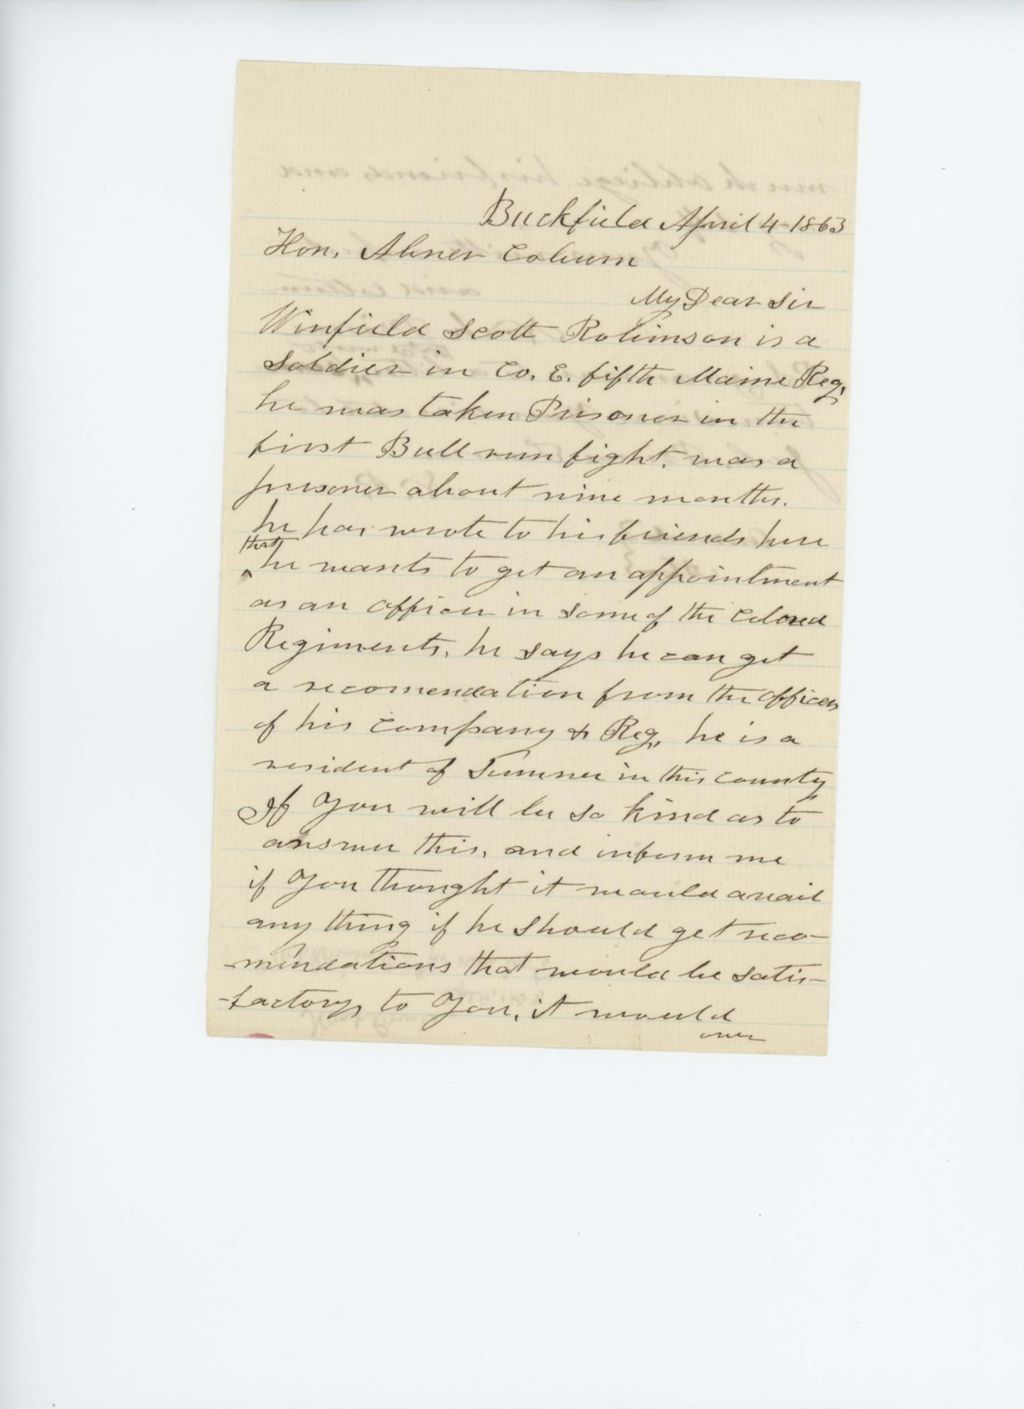 Buckfield April 4-1863
Hon. Abner Coburn
My Dear Sir
Winfield Scott Robinson is a
Soldier in Co. E. fifth Maine Reg,
he was taken Prisoner in the
first Bull run fight. was a
prisoner about nine months.
he has wrote to his friends here
that he wants to get an appointment
as an officer in some of the Colored
Regiments, he says he can get
a recomendation from the officers
of his company & Reg, he is a
resident of Sumner in this county
If You will be so kind as to
answer this, and inform me
if You thought it would avail
any thing if he should get reco-
-mindations that would be satis-
-factory, to You, it would
over